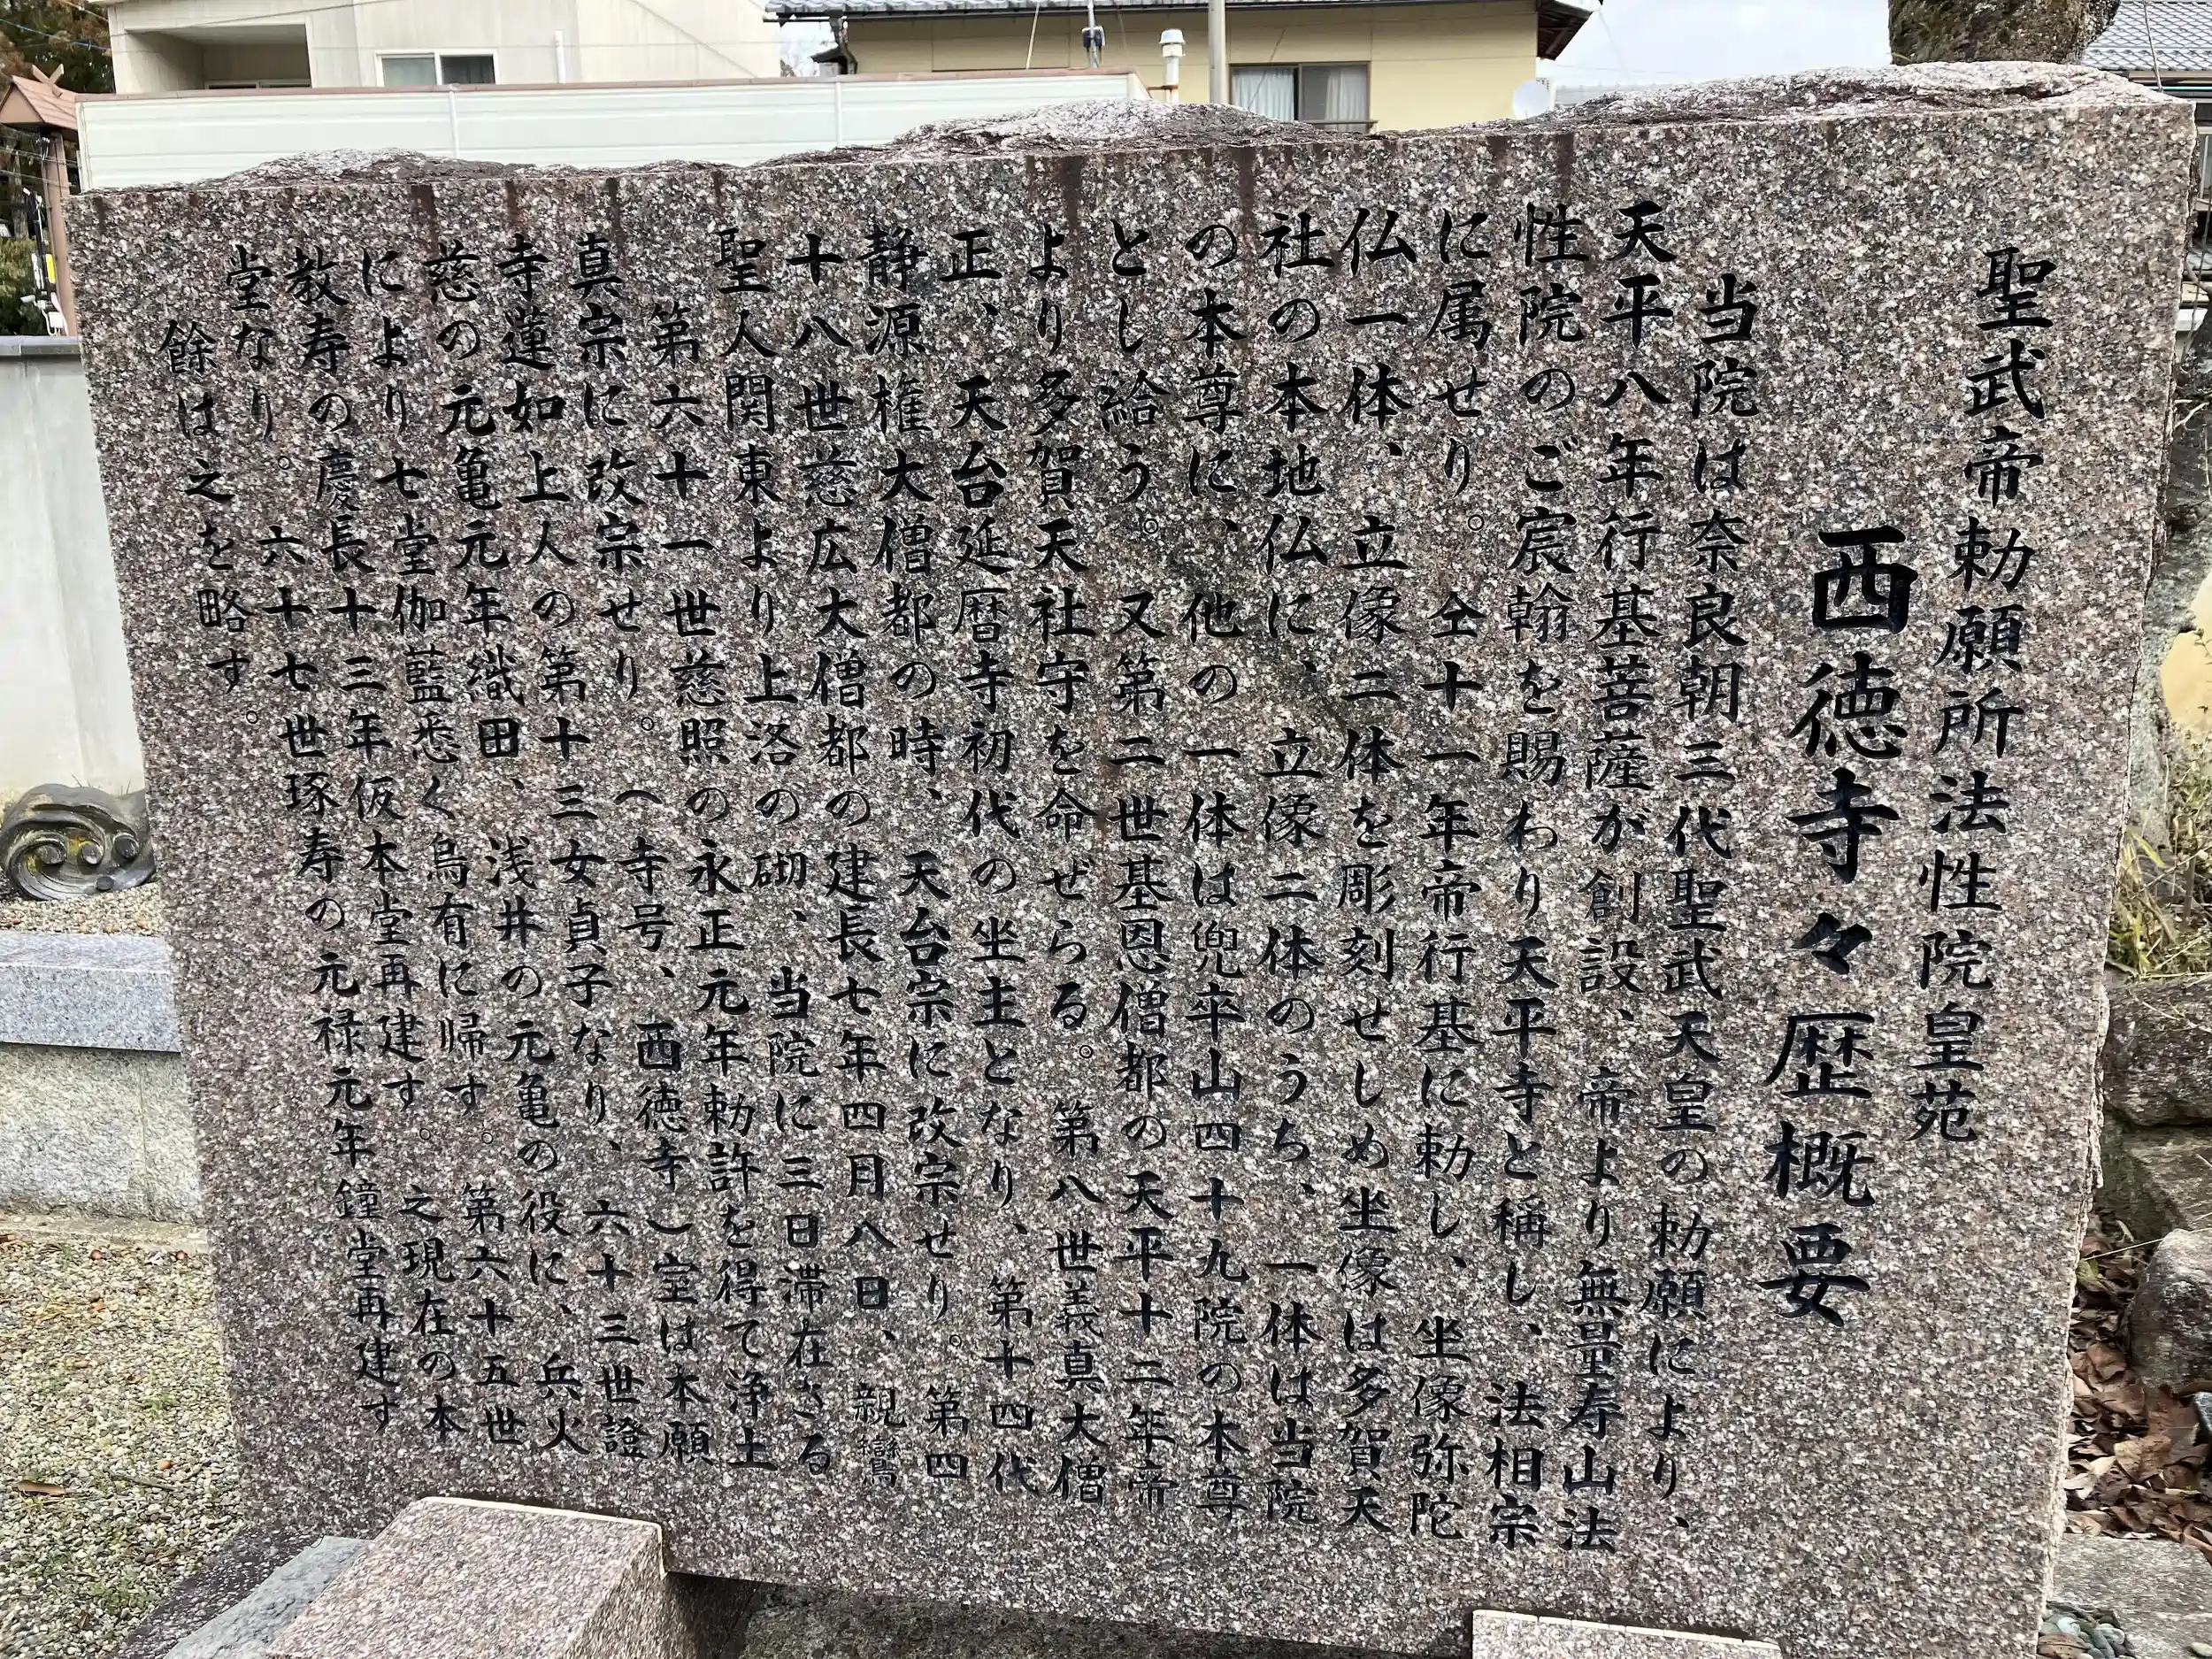 聖武帝勅願所法性院皇苑
西徳寺々歴概要
当院は奈良朝三代聖武天皇の勅願により、
天平八年行基菩薩が創設、帝より無量寿山法
性院のご宸翰を賜わり天平寺と稱し、法相宗
に属せり。仝十一年帝行基に勅し、坐像弥陀
仏一体、立像二体を彫刻せしめ坐像は多賀天
社の本地仏に、立像二体のうち、一体は当院
の本尊に、他の一体は兜卒山四十九院の本尊
とし給う。又第二世基恩僧都の天平十二年帝
より多賀天社守を命ぜらる。第八世義真大僧
正、天台延暦寺初代の坐主となり、第十四代
静源権大僧都の時、天台宗に改宗せり。第四
十八世慈広大僧都の建長七年四月八日、親鸞
聖人関東より上洛の砌、当院に三日滞在さる
第六十一世慈照の永正元年勅許を得て浄土
真宗に改宗せり。(寺号、西徳寺)室は本願
寺蓮如上人の第十三女貞子なり、六十三世證
慈の元亀元年織田、浅井の元亀の役に、兵火
により七堂伽藍悉く烏有に帰す。第六十五世
教寿の慶長十三年仮本堂再建す。之現在の本
堂なり。六十七世琢寿の元禄元年鐘堂再建す
餘は之を略す。